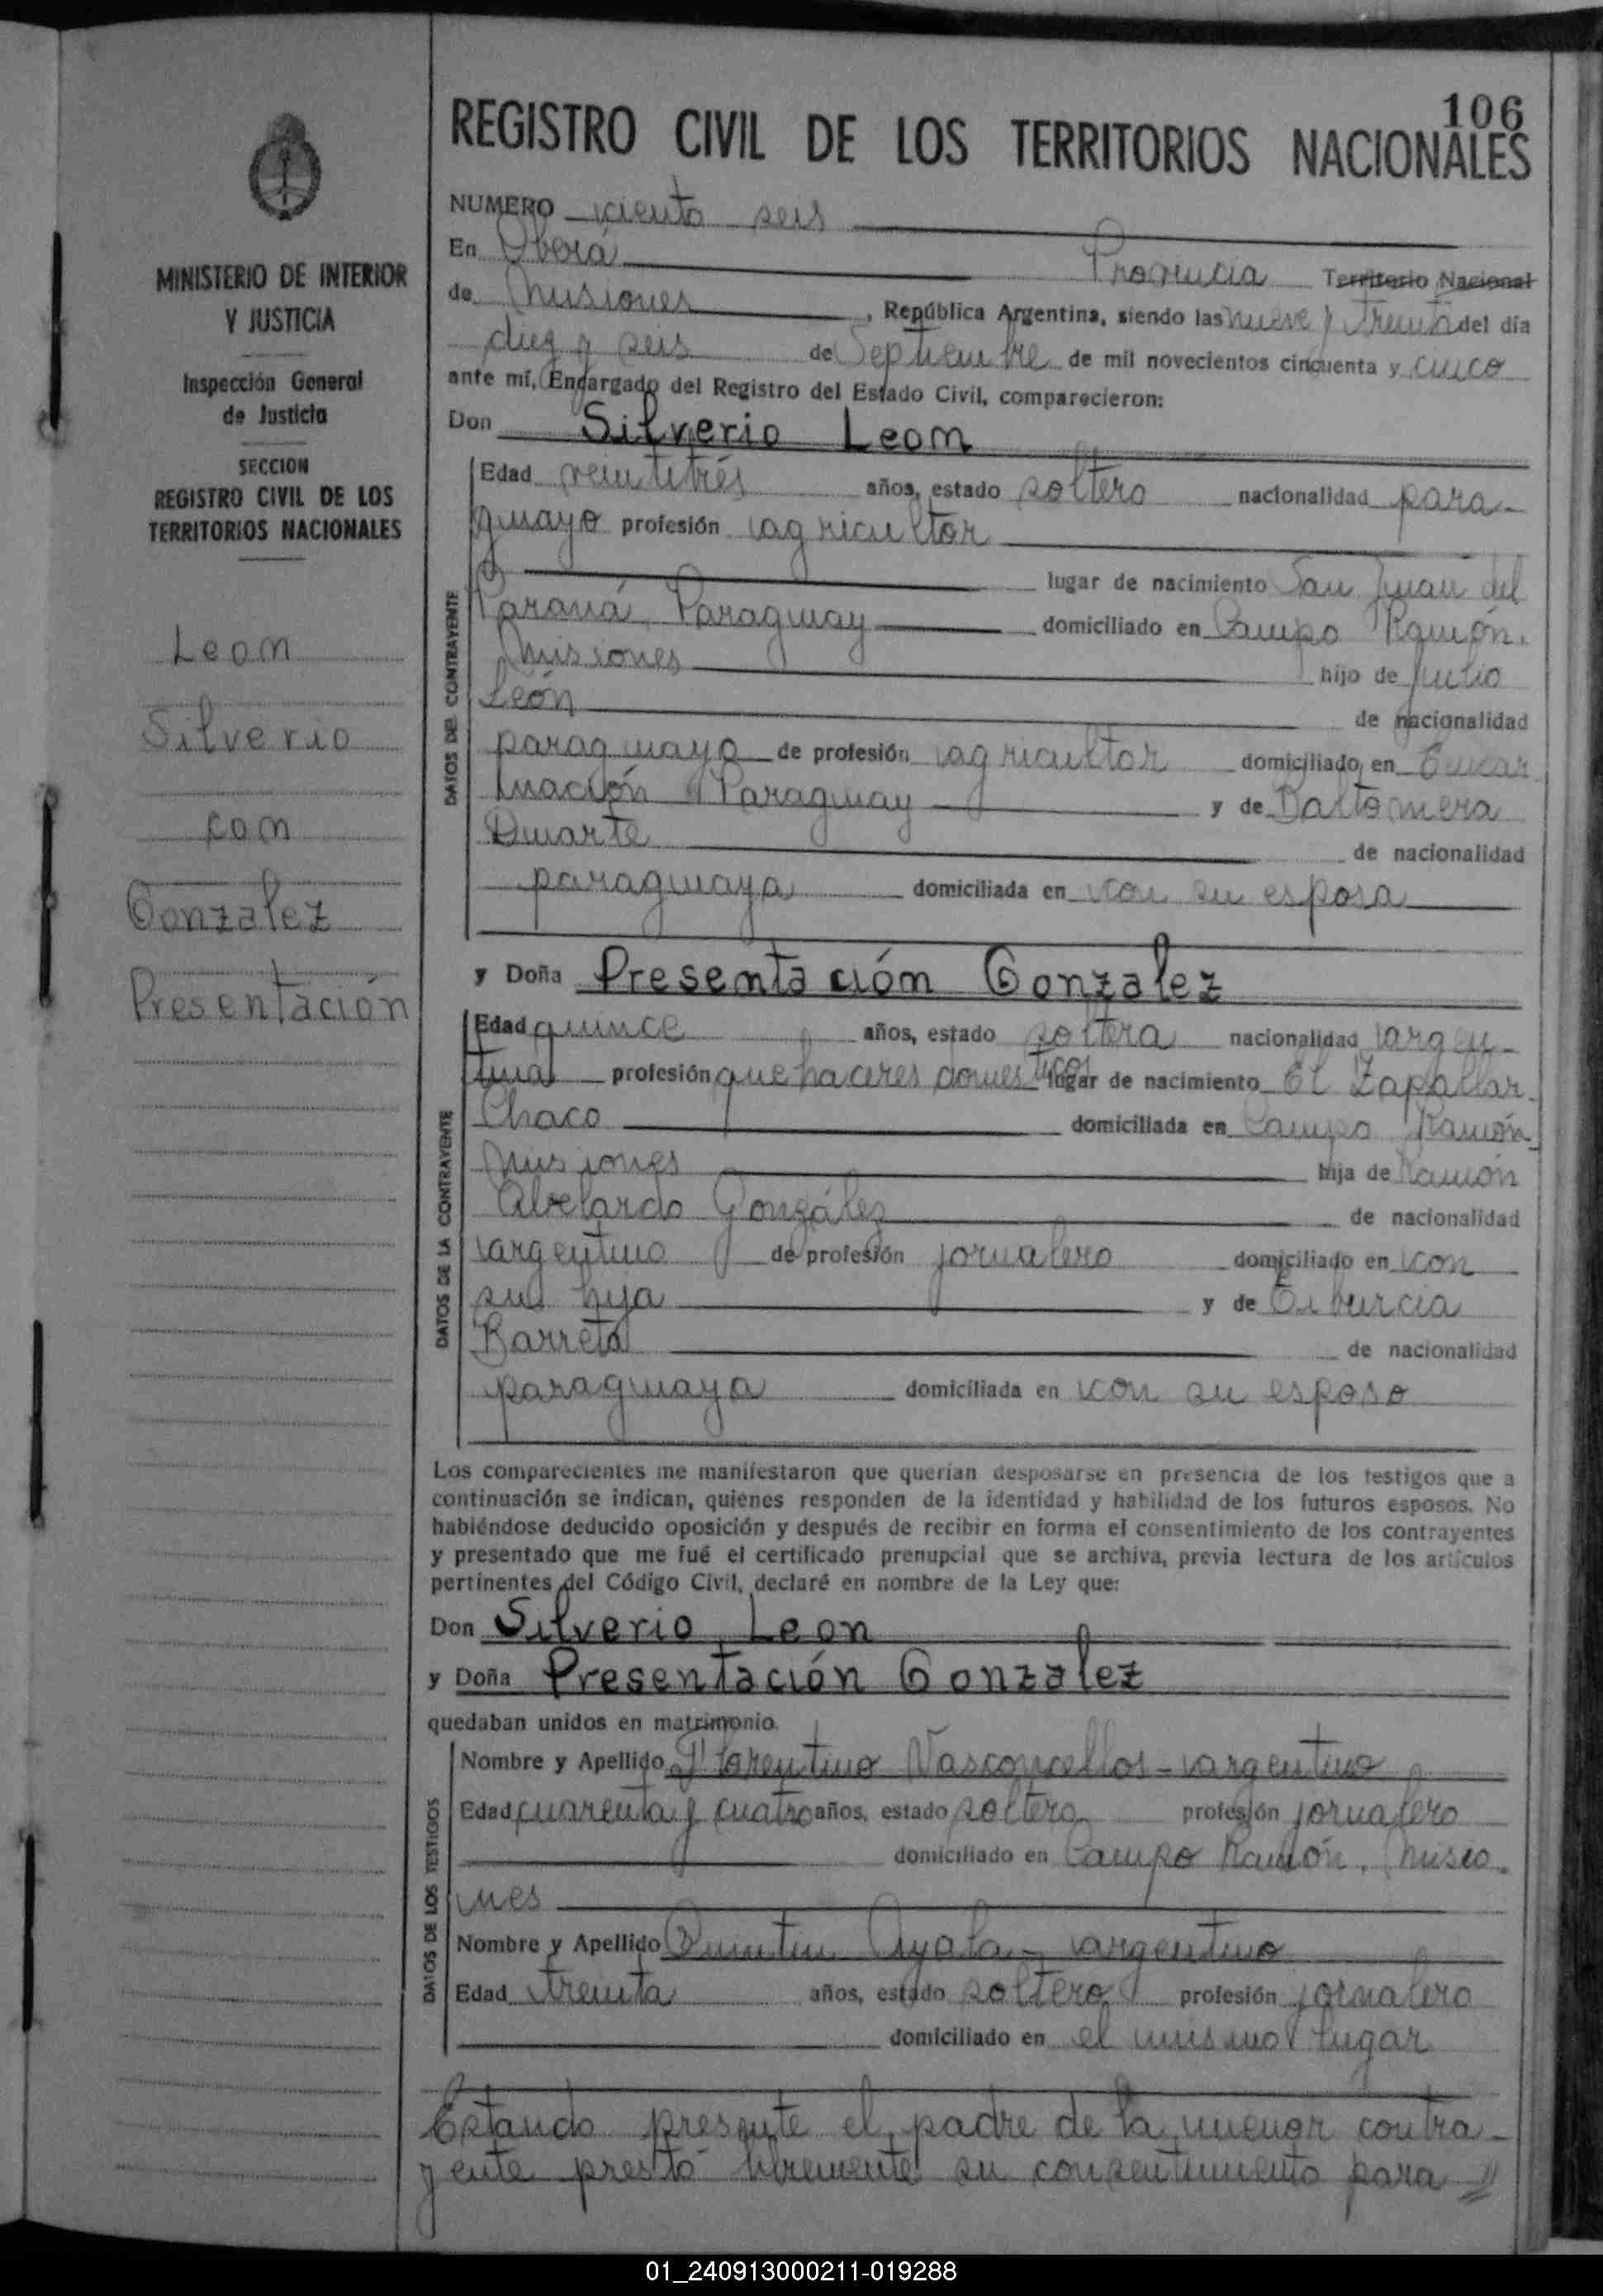 106
REGISTRO CIVIL DE LOS TERRITORIOS NACIONALES
MINISTERIO DE INTERIOR
Y JUSTICIA
Inspección General
de Justicia
SECCION
REGISTRO CIVIL DE LOS
TERRITORIOS NACIONALES
Leon
Silverio
con
Gonzalez
Presentación
NUMERO ciento seis
En Oberá Provincia Territorio Nacional
de Misiones, República Argentina, siendo las nueve y treinta del día
diez y seis de Septiembre de mil novecientos cincuenta y cinco
ante mí, Encargado del Registro del Estado Civil, comparecieron:
Don Silverio Leon
DATOS DEL CONTRAYENTE
Edad veintitrés años, estado soltero nacionalidad para-
guayo profesión agricultor
lugar de nacimiento San Juan del
Paraná, Paraguay domiciliado en Campo Ramón.
Misiones hijo de Julio
León de nacionalidad
paraguayo de profesión agricultor domiciliado en Encar
nación Paraguay y de Baltomera
Duarte de nacionalidad
paraguaya domiciliada en con su esposa
y Doña Presentación Gonzalez
DATOS DE LA CONTRAYENTE
Edad quince años, estado soltera nacionalidad argen-
tina profesión quehaceres domesticos lugar de nacimiento El Zapallar.
Chaco domiciliada en Campo Ramón
Misiones hija de Ramón
Abelardo González de nacionalidad
argentino de profesión jornalero domiciliado en con
su hija y de Tiburcia
Barreta de nacionalidad
paraguaya domiciliada en con su esposo
Los comparecientes me manifestaron que querían desposarse en presencia de los testigos que a
continuación se indican, quienes responden de la identidad y habilidad de los futuros esposos. No
habiéndose deducido oposición y después de recibir en forma el consentimiento de los contrayentes
y presentado que me fué el certificado prenupcial que se archiva, previa lectura de los artículos
pertinentes del Código Civil, declaré en nombre de la Ley que:
Don Silverio Leon
y Doña Presentación Gonzalez
quedaban unidos en matrimonio.
DATOS DE LOS TESTIGOS
Nombre y Apellido Florentino Vasconcellos - argentino
Edad cuarenta y cuatro años, estado soltero profesión jornalero
domiciliado en Campo Ramón, Misio-
nes
Nombre y Apellido Quintin Ayala - argentino
Edad treinta años, estado soltero profesión jornalero
domiciliado en el mismo lugar
Estando presente el padre de la menor contra-
yente prestó libremente su consentimiento para //
01_240913000211-019288